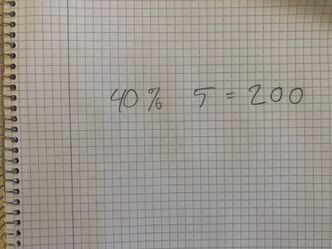 40% 5 = 200